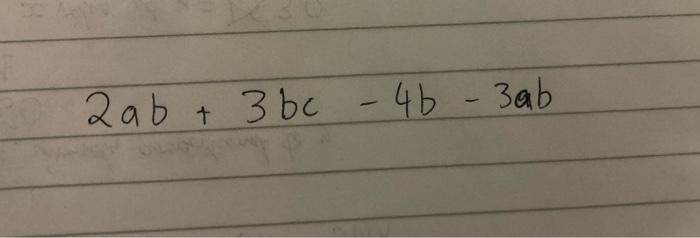 2ab + 3bc - 4b - 3ab